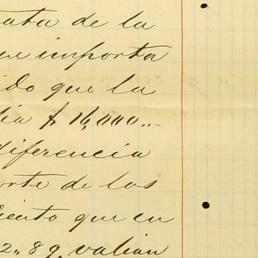 ata de la
ue importa
ido que la
lia $ 16,000..-
diferencia
orte de los
iento que en
2., 89, valian